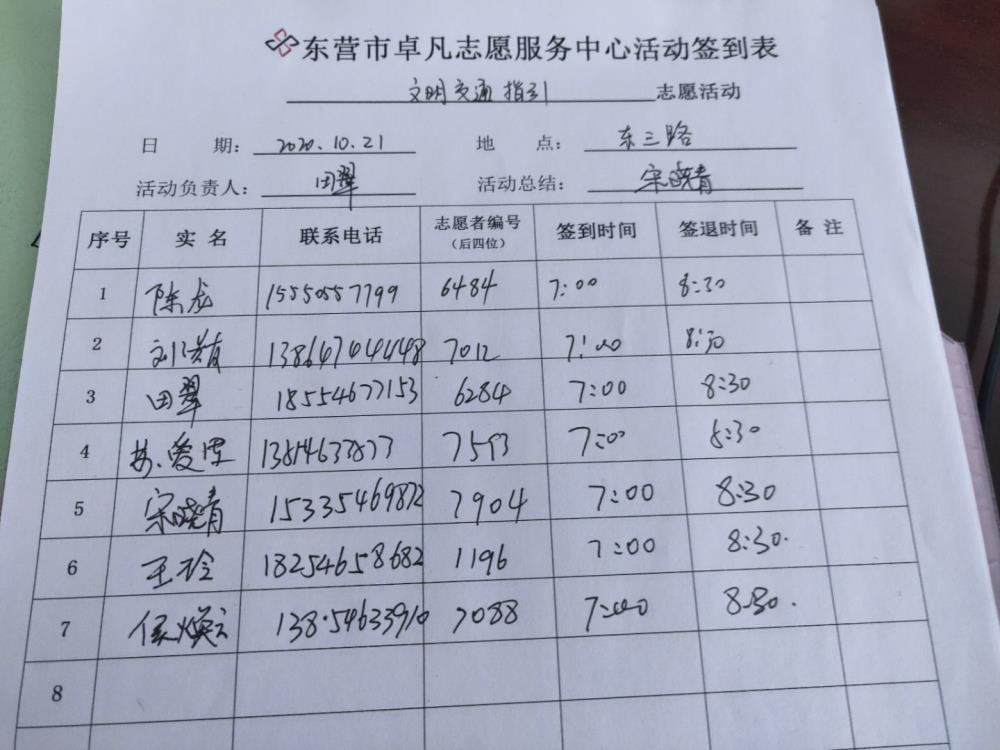 东营市卓凡志愿服务中心活动签到表
文明交通指引 志愿活动
日 期: 2020.10.21 地 点: 东三路
活动负责人: 田翠 活动总结: 宋晓青
序号 实名 联系电话 志愿者编号(后四位) 签到时间 签退时间 备注
1 陈龙 15550557799 6484 7:00 8:30
2 13864704448 7012 7:00 8:30
3 田翠 18554677153 6284 7:00 8:30
4 7593 7:00 8:30
5 宋晓青 15335469872 7904 7:00 8:30
6 王玲 18254658682 1196 7:00 8:30.
7 侯焕云 138.54633910 7088 7:00 8:30.
8